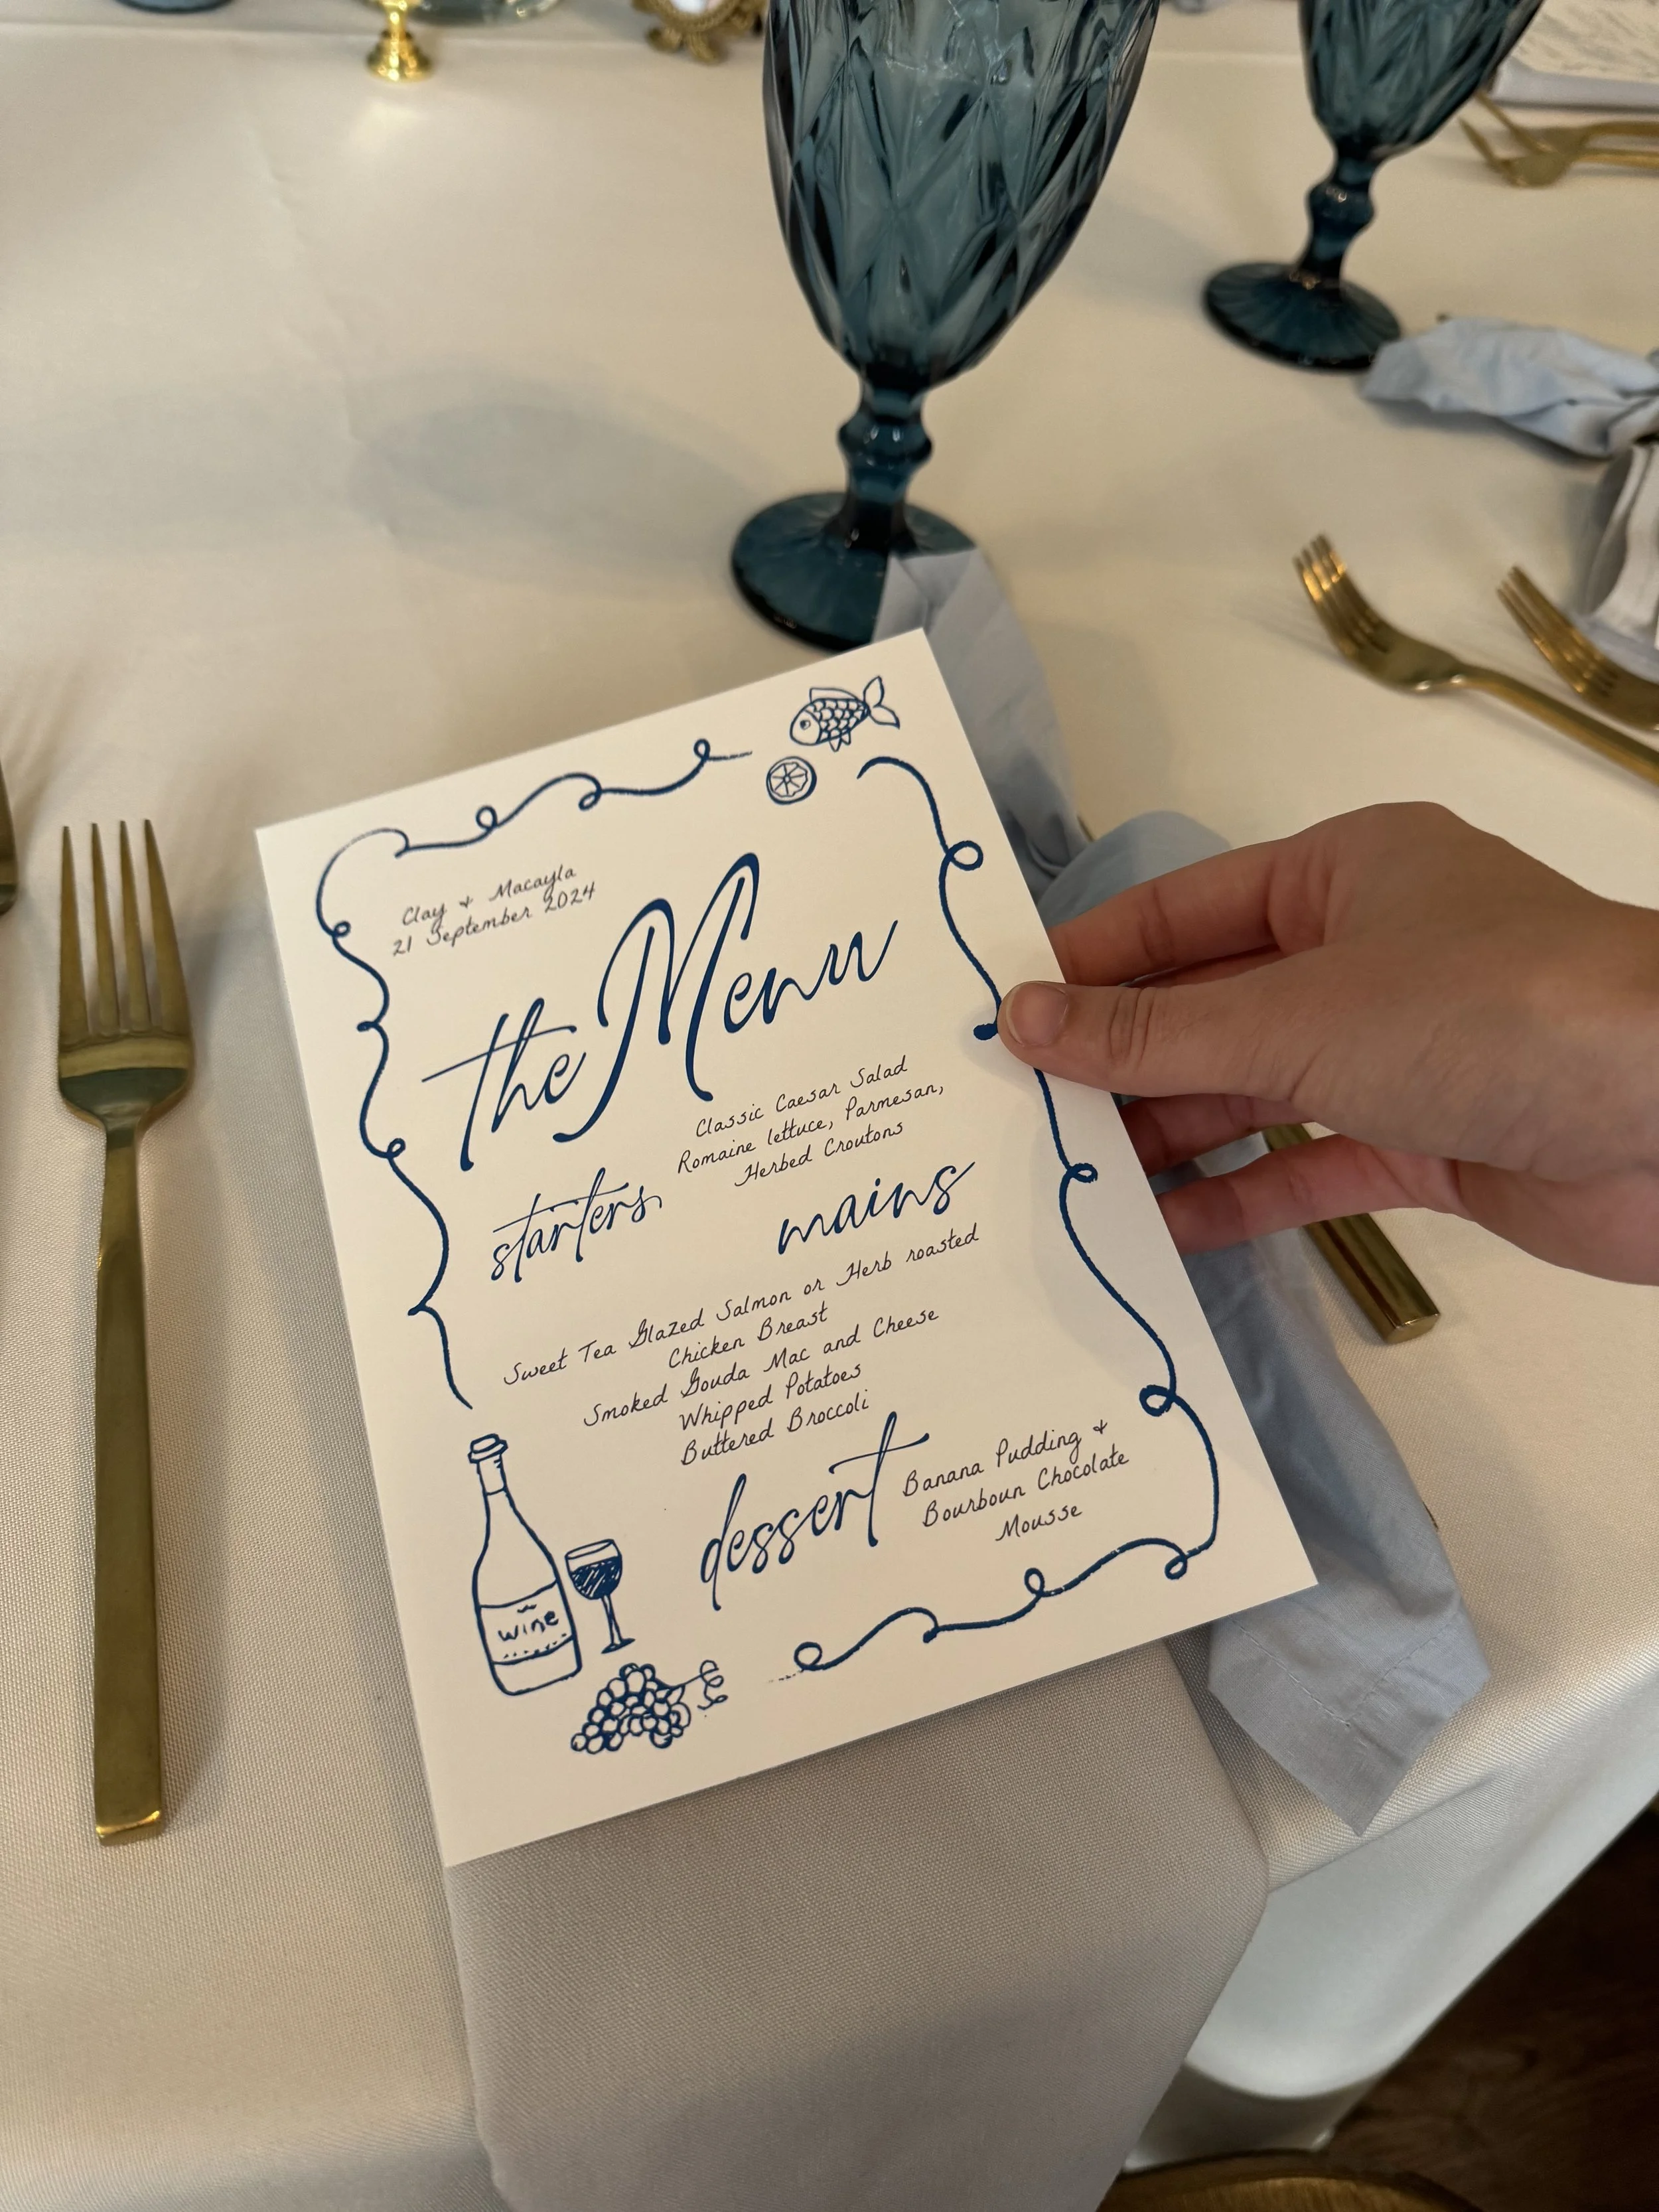 Clay + Macayla
21 September 2024
the Menu
starters
Classic Caesar Salad
Romaine lettuce, Parmesan,
Herbed Croutons
mains
Sweet Tea Glazed Salmon or Herb roasted
Chicken Breast
Smoked Gouda Mac and Cheese
Whipped Potatoes
Buttered Broccoli
dessert
Banana Pudding +
Bourboun Chocolate
Mousse
wine